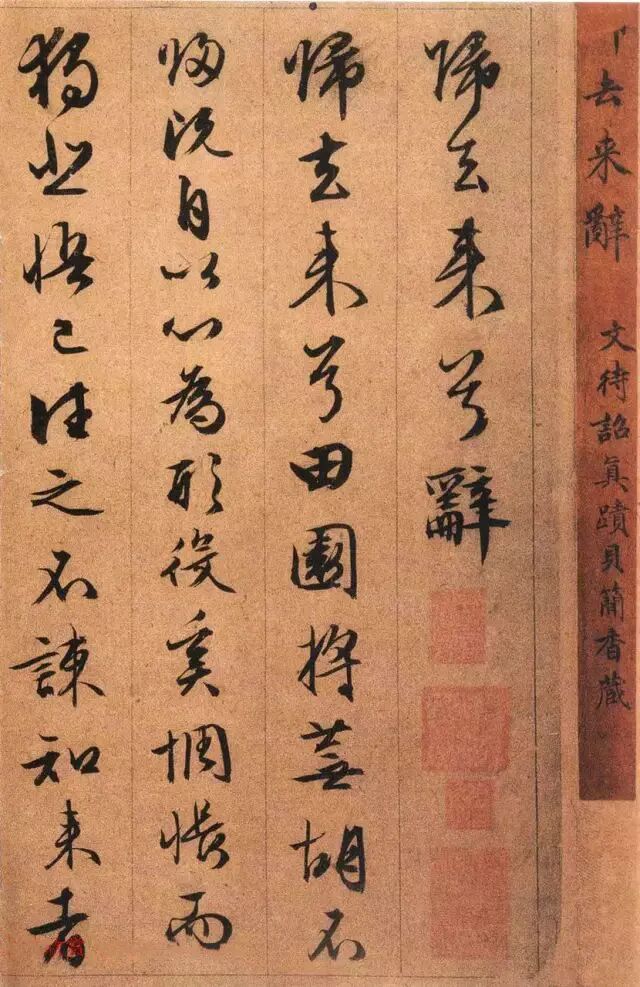 去来辭 文待詔真蹟貝簡香藏
歸去来兮辭
歸去来兮田園將蕪胡不
歸既自以心為形役奚惆悵而
獨悲悟已往之不諫知来者